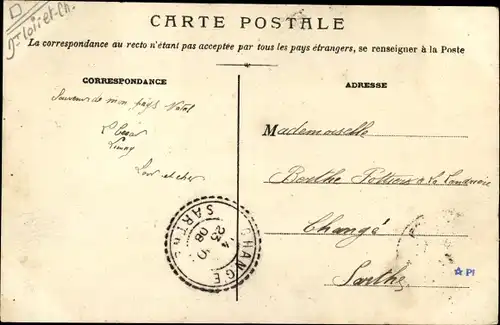 Dt Loir-et-Ch.
CARTE POSTALE
La correspondance au recto n'étant pas acceptée par tous les pays étrangers, se renseigner à la Poste
CORRESPONDANCE
ADRESSE
Souvenir de mon pays Natal
Loir et cher
Mademoiselle
Berthe
à La
Changé
Sarthe
CHANGÉ
SARTHE
23
08
☆ PI